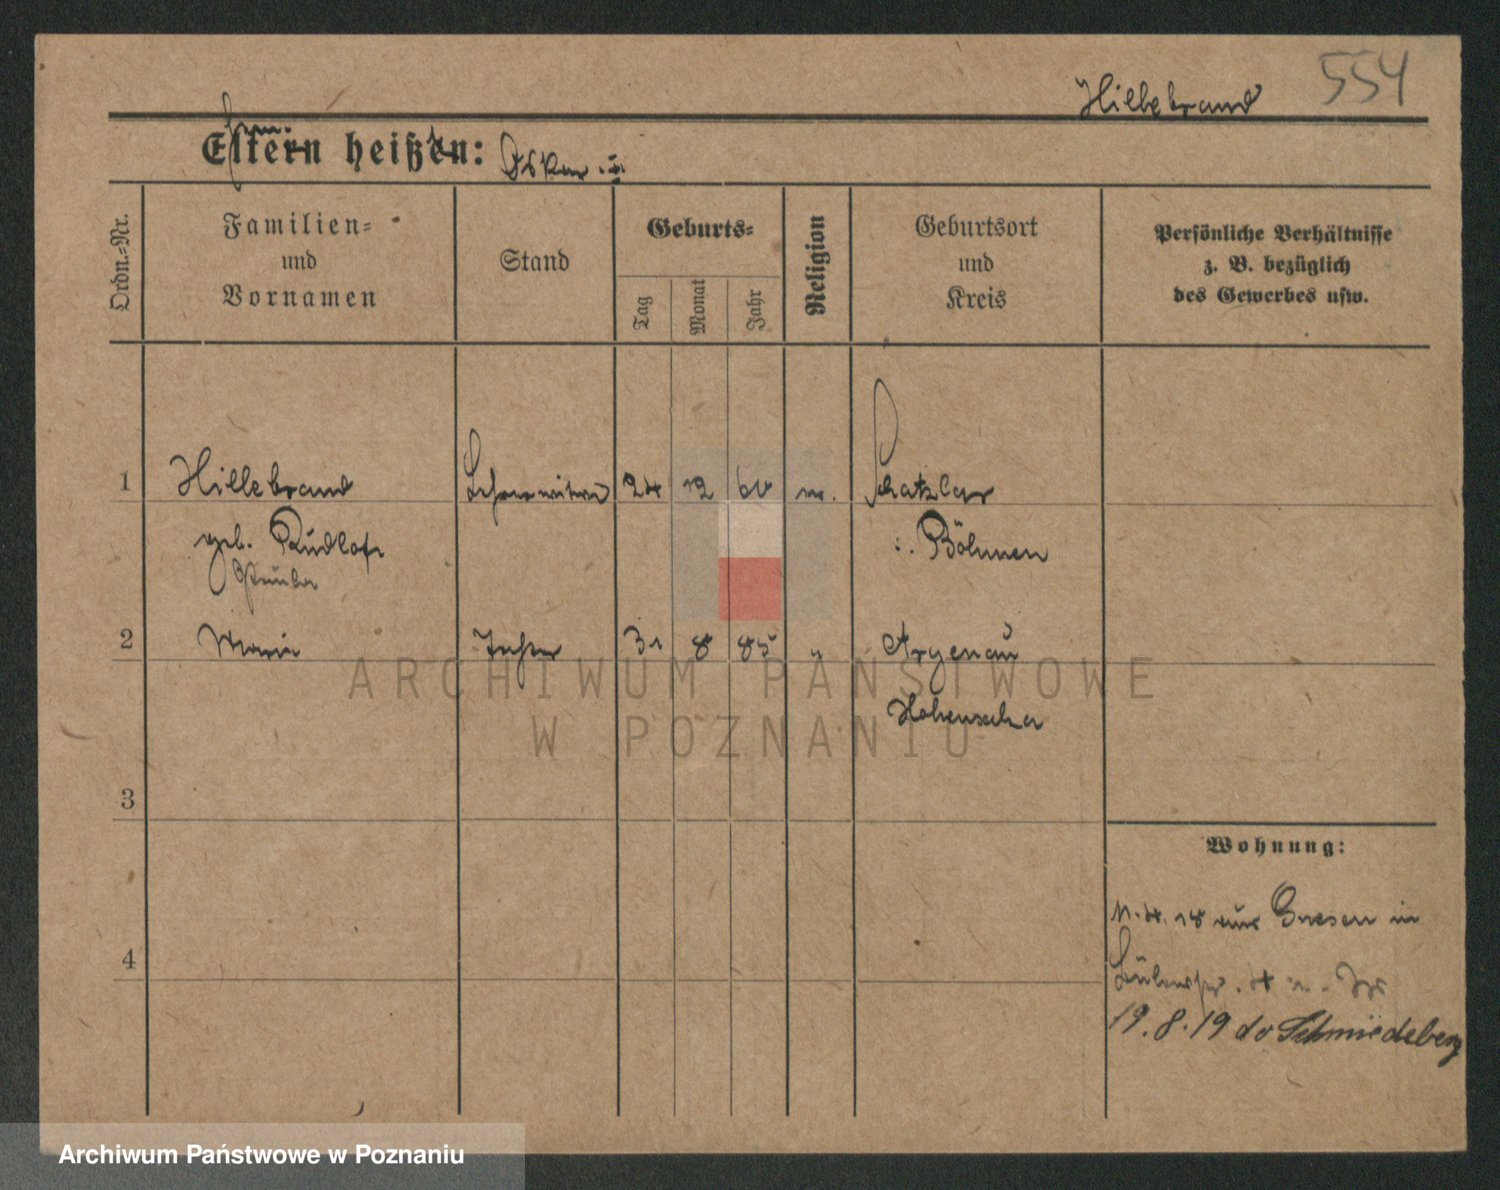 554
Hillebrand
Eltern heißen: Oskar
Ordn.-Nr.
Familien- und Vornamen
Stand
Geburts-
Tag
Monat
Jahr
Religion
Geburtsort und Kreis
Persönliche Verhältnisse z. B. bezüglich des Gewerbes usw.
1 Hillebrand 24 12 60 Schatzlar
geb. Rudloff i. Böhmen
Paula
2 Marie Tochter 31 8 85 " Argenau
Hohensalza
ARCHIWUM PAŃSTWOWE
W POZNANIU
3
Wohnung:
4
aus Gnesen in
19.8.19 do Schmiedeberg
Archiwum Państwowe w Poznaniu